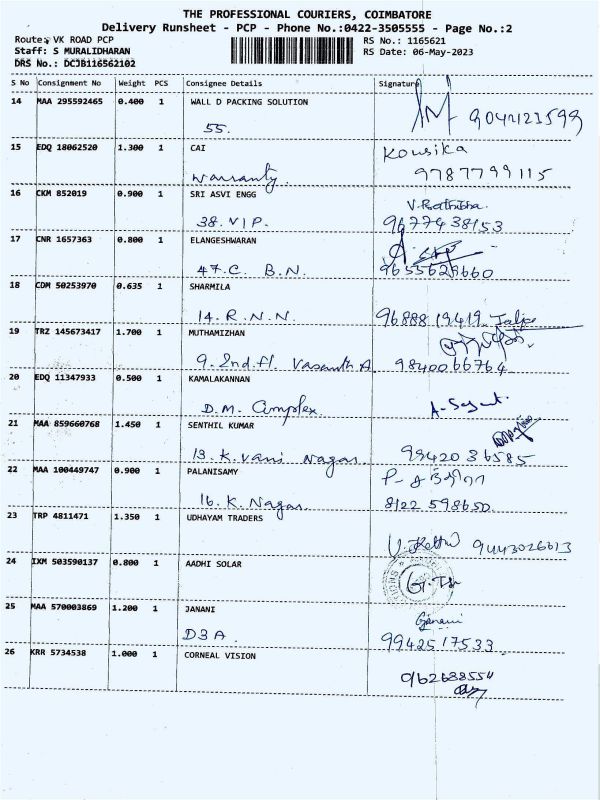 THE PROFESSIONAL COURIERS, COIMBATORE
Delivery Runsheet - PCP - Phone No.:0422-3505555 - Page No.:2
Route: VK ROAD PCP RS No.: 1165621
Staff: S MURALIDHARAN RS Date: 06-May-2023
DRS No.: DCJB116562102
S No Consignment No Weight PCS Consignee Details Signature
14 MAA 295592465 0.400 1 WALL D PACKING SOLUTION
55. 9042123599
15 EDQ 18062520 1.300 1 CAI Kousika
warranty. 9787799115
16 CKM 852019 0.900 1 SRI ASVI ENGG
38. V.I.P. 9677438153
17 CNR 1657363 0.800 1 ELANGESHWARAN
47. C. B.N. 9655629660
18 CDM 50253970 0.635 1 SHARMILA
14. R.N.N. 96888 19419
19 TRZ 145673417 1.700 1 MUTHAMIZHAN
9. 2nd.fl. Vasanth A. 9840066764
20 EDQ 11347933 0.500 1 KAMALAKANNAN
D.M. Complex.
21 MAA 859660768 1.450 1 SENTHIL KUMAR
13. K. Vani Nagar 9942036585
22 MAA 100449747 0.900 1 PALANISAMY
16. K. Nagar 8122 598650.
23 TRP 4811471 1.350 1 UDHAYAM TRADERS
9443026613
24 IXM 503590137 0.800 1 AADHI SOLAR
25 MAA 570003869 1.200 1 JANANI Janani
D3A. 9942517533
26 KRR 5734538 1.000 1 CORNEAL VISION